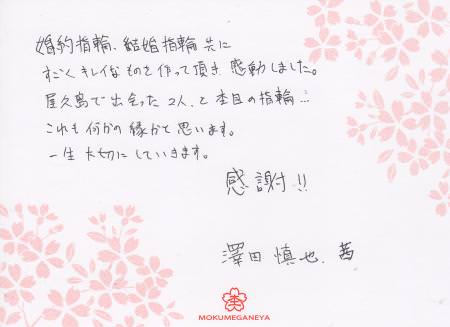 婚約指輪、結婚指輪 共に
すごく キレイな ものを 作って 頂き 感動しました。
屋久島で 出会った 2人、と 木目の 指輪…
これも 何かの 縁かと 思います。
一生 大切に していきます。
感謝!!
澤田 慎也、茜
MOKUMEGANEYA